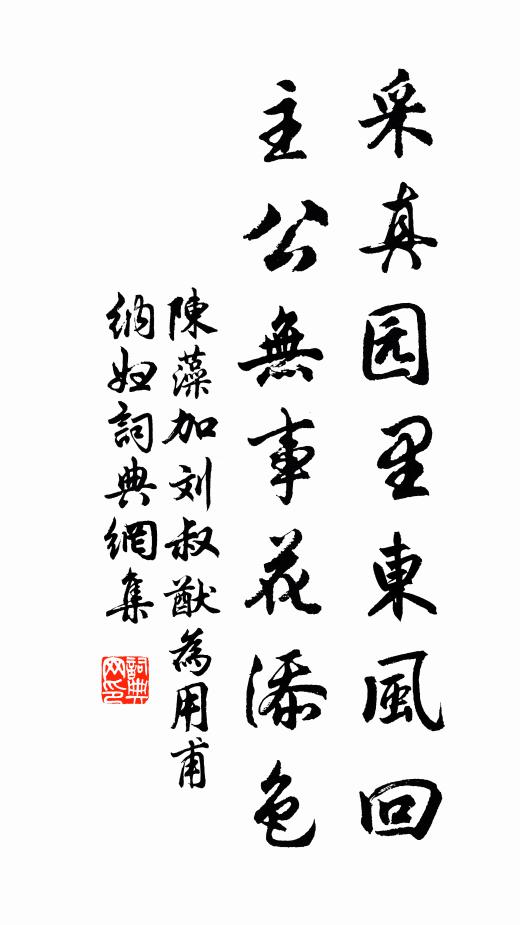 采真园里東風回
主公無事花添色
陳藻加刘叔猷為用甫
納妇詞典網集
詞典
网印